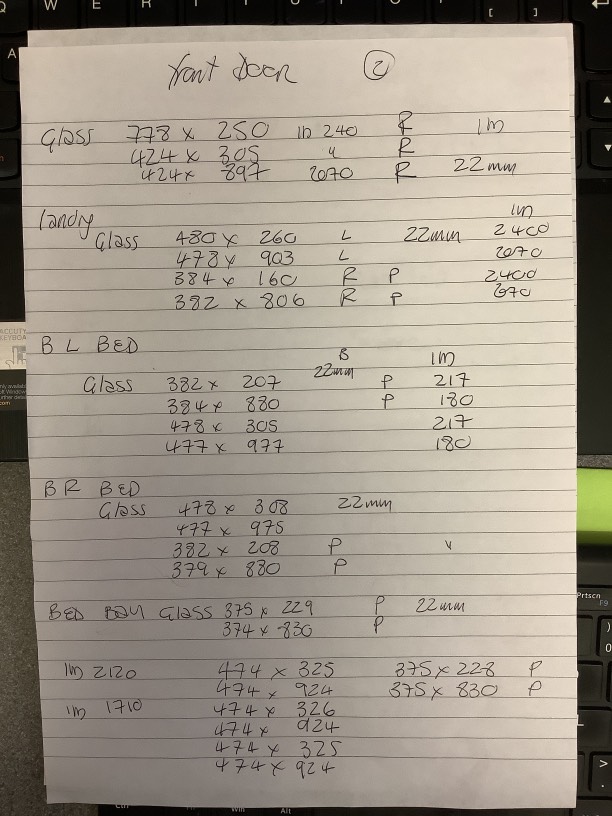 Front Door ②
Glass 778 x 250 1m 240 R 1m
424 x 305 " R
424 x 897 2070 R 22mm
landry 1m
Glass 480 x 260 L 22mm 2400
478 x 903 L 2070
384 x 160 R P 2400
382 x 806 R P 2070
B L BED B 1m
Glass 382 x 207 22mm P 217
384 x 880 P 180
478 x 305 217
477 x 977 180
B R BED
Glass 478 x 308 22mm
477 x 975
382 x 208 P
379 x 880 P
BED BAY Glass 375 x 229 P 22mm
374 x 830 P
1m 2120 474 x 325 375 x 228 P
474 x 924 375 x 830 P
1m 1710 474 x 326
474 x 924
474 x 325
474 x 924
W E R [ ]
A
Prtscn
F9
Ctrl Win Alt